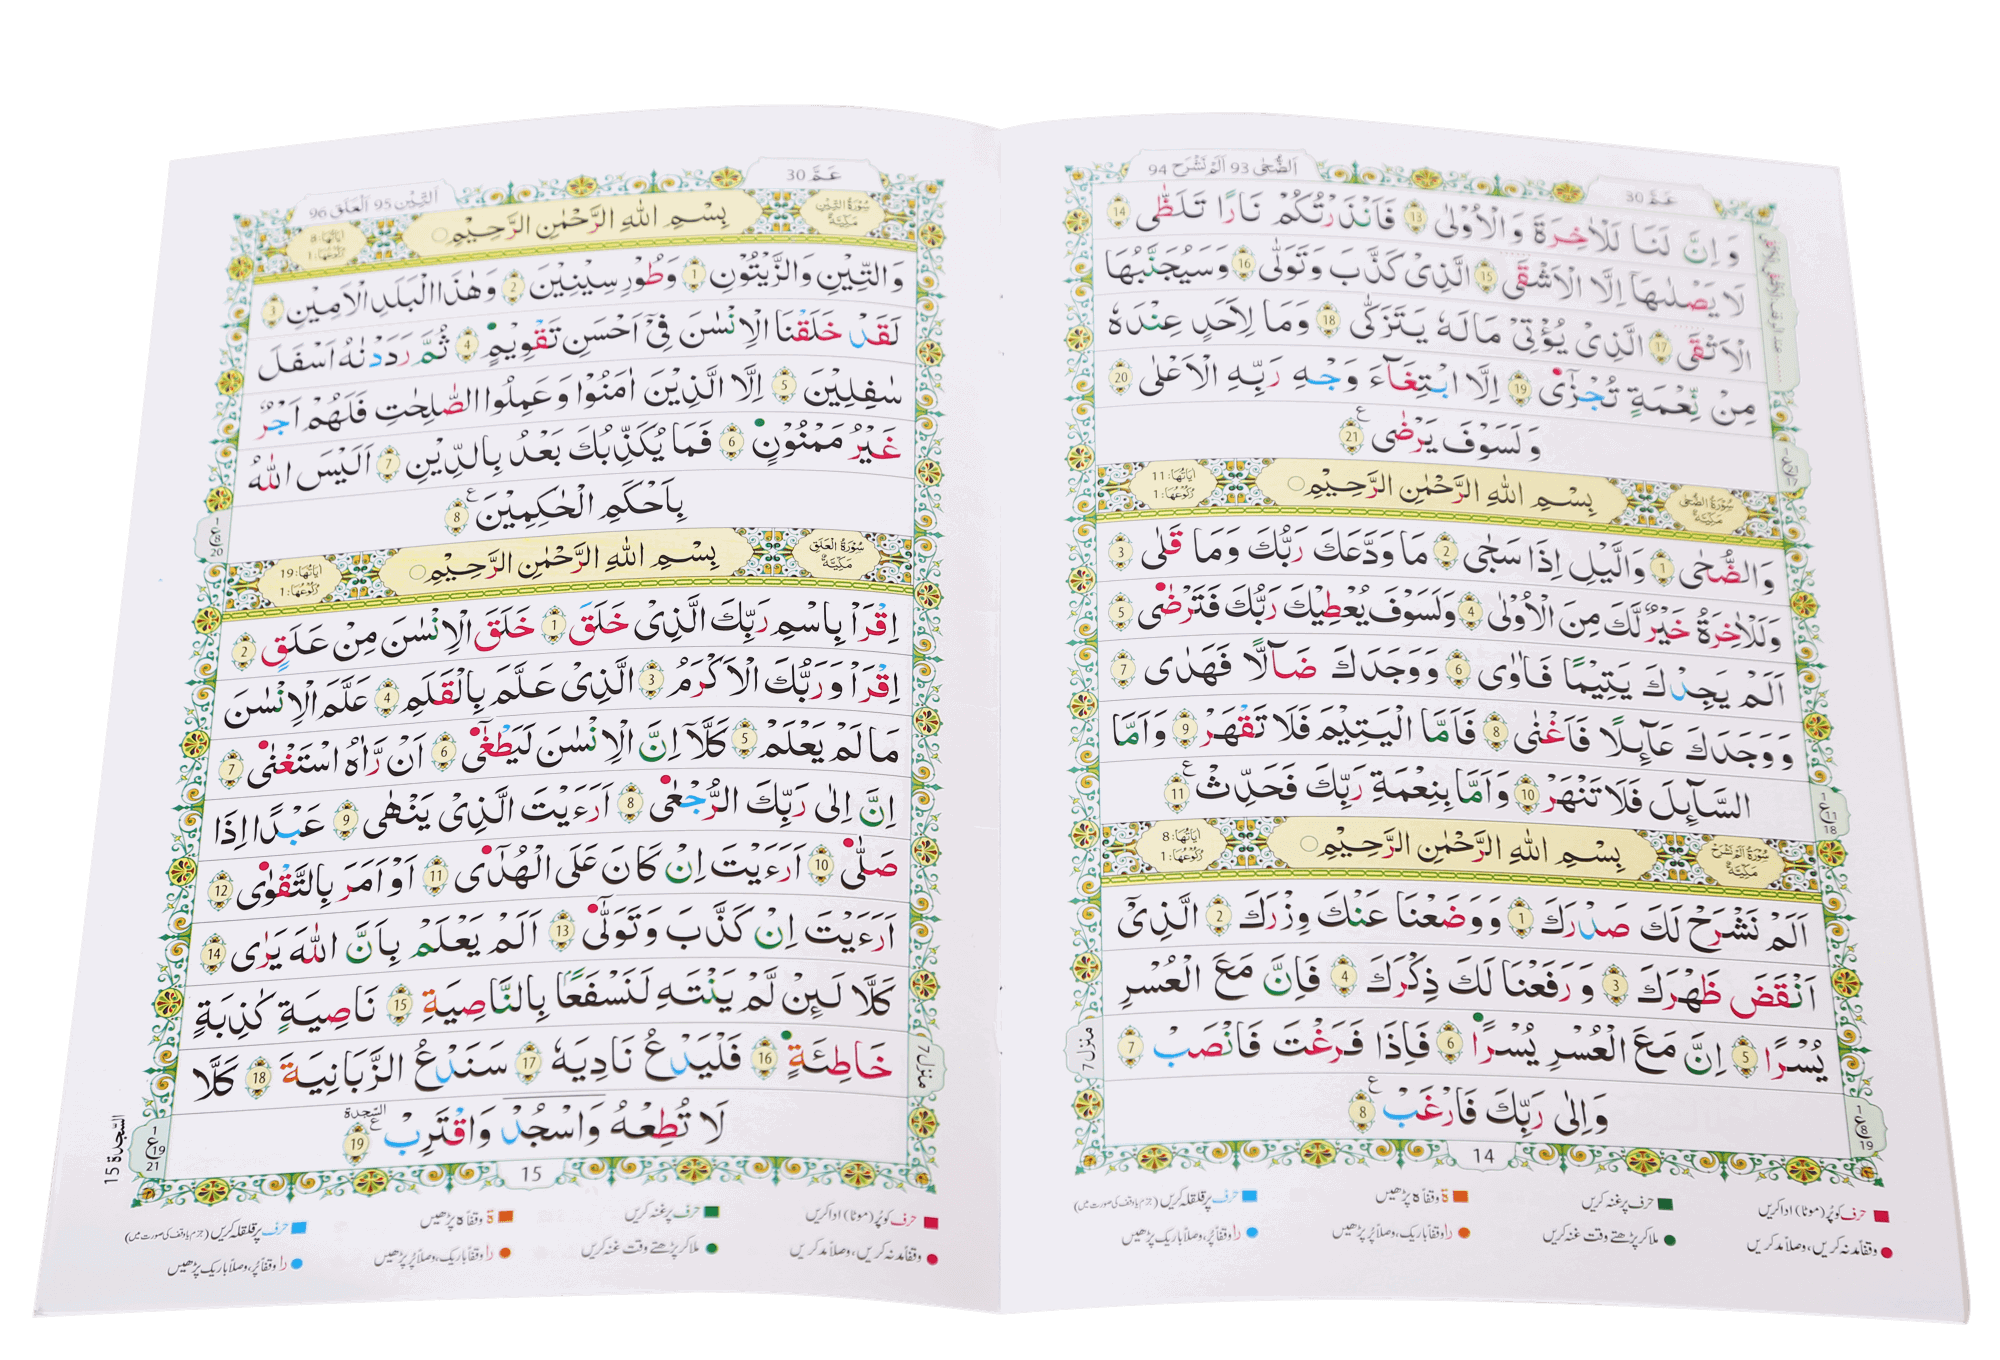 عَمَّ 30
اَلضُّحٰى 93 اَلَمْ نَشْرَحْ 94
وَ اِنَّ لَنَا لَلْاٰخِرَةَ وَ الْاُوْلٰى 13 فَاَنْذَرْتُكُمْ نَارًا تَلَظّٰى 14
لَا يَصْلٰىهَاۤ اِلَّا الْاَشْقَى 15 الَّذِىْ كَذَّبَ وَ تَوَلّٰى 16 وَ سَيُجَنَّبُهَا
الْاَتْقَى 17 الَّذِىْ يُؤْتِىْ مَالَهٗ يَتَزَكّٰى 18 وَمَا لِاَحَدٍ عِنْدَهٗ
مِنْ نِّعْمَةٍ تُجْزٰٓى 19 اِلَّا ابْتِغَآءَ وَجْهِ رَبِّهِ الْاَعْلٰى 20
وَ لَسَوْفَ يَرْضٰى 21 ع
سُوْرَةُ الضُّحٰى مَكِّيَّةٌ
بِسْمِ اللهِ الرَّحْمٰنِ الرَّحِيْمِ
اٰيَاتُهَا: 11
رُكُوْعُهَا: 1
وَالضُّحٰى 1 وَالَّيْلِ اِذَا سَجٰى 2 مَا وَدَّعَكَ رَبُّكَ وَمَا قَلٰى 3
وَلَلْاٰخِرَةُ خَيْرٌ لَّكَ مِنَ الْاُوْلٰى 4 وَلَسَوْفَ يُعْطِيْكَ رَبُّكَ فَتَرْضٰى 5
اَلَمْ يَجِدْكَ يَتِيْمًا فَاٰوٰى 6 وَ وَجَدَكَ ضَآلًّا فَهَدٰى 7
وَ وَجَدَكَ عَآىِٕلًا فَاَغْنٰى 8 فَاَمَّا الْيَتِيْمَ فَلَا تَقْهَرْ 9 وَ اَمَّا
السَّآىِٕلَ فَلَا تَنْهَرْ 10 وَ اَمَّا بِنِعْمَةِ رَبِّكَ فَحَدِّثْ 11 ع
1 ع 11 18
سُوْرَةُ اَلَمْ نَشْرَحْ مَكِّيَّةٌ
بِسْمِ اللهِ الرَّحْمٰنِ الرَّحِيْمِ
اٰيَاتُهَا: 8
رُكُوْعُهَا: 1
اَلَمْ نَشْرَحْ لَكَ صَدْرَكَ 1 وَ وَضَعْنَا عَنْكَ وِزْرَكَ 2 الَّذِىْۤ
اَنْقَضَ ظَهْرَكَ 3 وَ رَفَعْنَا لَكَ ذِكْرَكَ 4 فَاِنَّ مَعَ الْعُسْرِ
يُسْرًا 5 اِنَّ مَعَ الْعُسْرِ يُسْرًا 6 فَاِذَا فَرَغْتَ فَانْصَبْ 7
منزل 7
وَ اِلٰى رَبِّكَ فَارْغَبْ 8 ع
1 ع 8 19
14
حرف کو پُر (موٹا) ادا کریں
حرف پر غنہ کریں
ۃ وقفاً ہ پڑھیں
حرف پر قلقلہ کریں (جزم یا وقف کی صورت میں)
وقفاً مد نہ کریں، وصلاً مد کریں
ملا کر پڑھتے وقت غنہ کریں
را وقفاً باریک، وصلاً پُر پڑھیں
را وقفاً پُر، وصلاً باریک پڑھیں
عَمَّ 30
اَلتِّيْن 95 اَلْعَلَق 96
سُوْرَةُ التِّيْنِ مَكِّيَّةٌ
بِسْمِ اللهِ الرَّحْمٰنِ الرَّحِيْمِ
اٰيَاتُهَا: 8
رُكُوْعُهَا: 1
وَ التِّيْنِ وَ الزَّيْتُوْنِ 1 وَ طُوْرِ سِيْنِيْنَ 2 وَ هٰذَا الْبَلَدِ الْاَمِيْنِ 3
لَقَدْ خَلَقْنَا الْاِنْسٰنَ فِىْۤ اَحْسَنِ تَقْوِيْمٍ 4 ثُمَّ رَدَدْنٰهُ اَسْفَلَ
سٰفِلِيْنَ 5 اِلَّا الَّذِيْنَ اٰمَنُوْا وَ عَمِلُوا الصّٰلِحٰتِ فَلَهُمْ اَجْرٌ
غَيْرُ مَمْنُوْنٍ 6 فَمَا يُكَذِّبُكَ بَعْدُ بِالدِّيْنِ 7 اَلَيْسَ اللهُ
بِاَحْكَمِ الْحٰكِمِيْنَ 8 ع
1 ع 8 20
سُوْرَةُ الْعَلَقِ مَكِّيَّةٌ
بِسْمِ اللهِ الرَّحْمٰنِ الرَّحِيْمِ
اٰيَاتُهَا: 19
رُكُوْعُهَا: 1
اِقْرَاْ بِاسْمِ رَبِّكَ الَّذِىْ خَلَقَ 1 خَلَقَ الْاِنْسٰنَ مِنْ عَلَقٍ 2
اِقْرَاْ وَ رَبُّكَ الْاَكْرَمُ 3 الَّذِىْ عَلَّمَ بِالْقَلَمِ 4 عَلَّمَ الْاِنْسٰنَ
مَا لَمْ يَعْلَمْ 5 كَلَّاۤ اِنَّ الْاِنْسٰنَ لَيَطْغٰٓى 6 اَنْ رَّاٰهُ اسْتَغْنٰى 7
اِنَّ اِلٰى رَبِّكَ الرُّجْعٰى 8 اَرَءَيْتَ الَّذِىْ يَنْهٰى 9 عَبْدًا اِذَا
صَلّٰى 10 اَرَءَيْتَ اِنْ كَانَ عَلَى الْهُدٰٓى 11 اَوْ اَمَرَ بِالتَّقْوٰى 12
اَرَءَيْتَ اِنْ كَذَّبَ وَ تَوَلّٰى 13 اَلَمْ يَعْلَمْ بِاَنَّ اللهَ يَرٰى 14
كَلَّا لَىِٕنْ لَّمْ يَنْتَهِ لَنَسْفَعًۢا بِالنَّاصِيَةِ 15 نَاصِيَةٍ كٰذِبَةٍ
خَاطِئَةٍ 16 فَلْيَدْعُ نَادِيَهٗ 17 سَنَدْعُ الزَّبَانِيَةَ 18 كَلَّا
منزل 7
لَا تُطِعْهُ وَ اسْجُدْ وَ اقْتَرِبْ 19 السّجدة ع
1 ع 19 21
السّجدة 15
15
حرف کو پُر (موٹا) ادا کریں
حرف پر غنہ کریں
ۃ وقفاً ہ پڑھیں
حرف پر قلقلہ کریں (جزم یا وقف کی صورت میں)
وقفاً مد نہ کریں، وصلاً مد کریں
ملا کر پڑھتے وقت غنہ کریں
را وقفاً باریک، وصلاً پُر پڑھیں
را وقفاً پُر، وصلاً باریک پڑھیں